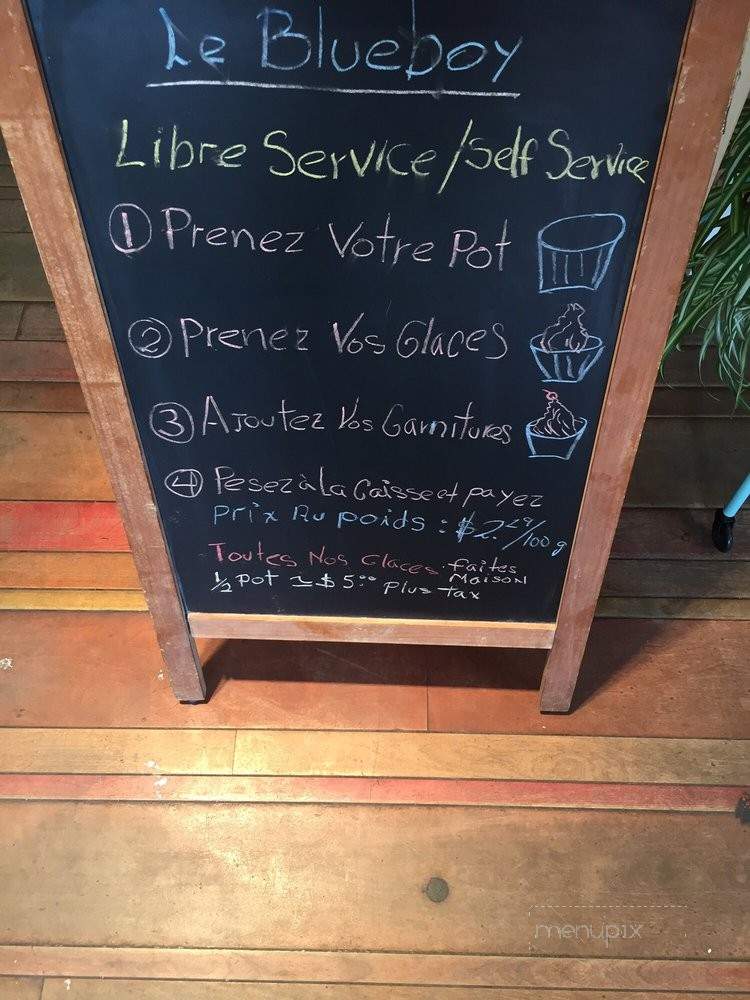 Le Blueboy
Libre Service/Self Service
① Prenez Votre Pot
② Prenez Vos Glaces
③ Ajoutez Vos Garnitures
④ Pesez à La Caisse et payez
Prix Au poids : $2.29/100g
Toutes Nos Glaces faites Maison
1/2 pot ≃ $5.00 plus tax
menupix